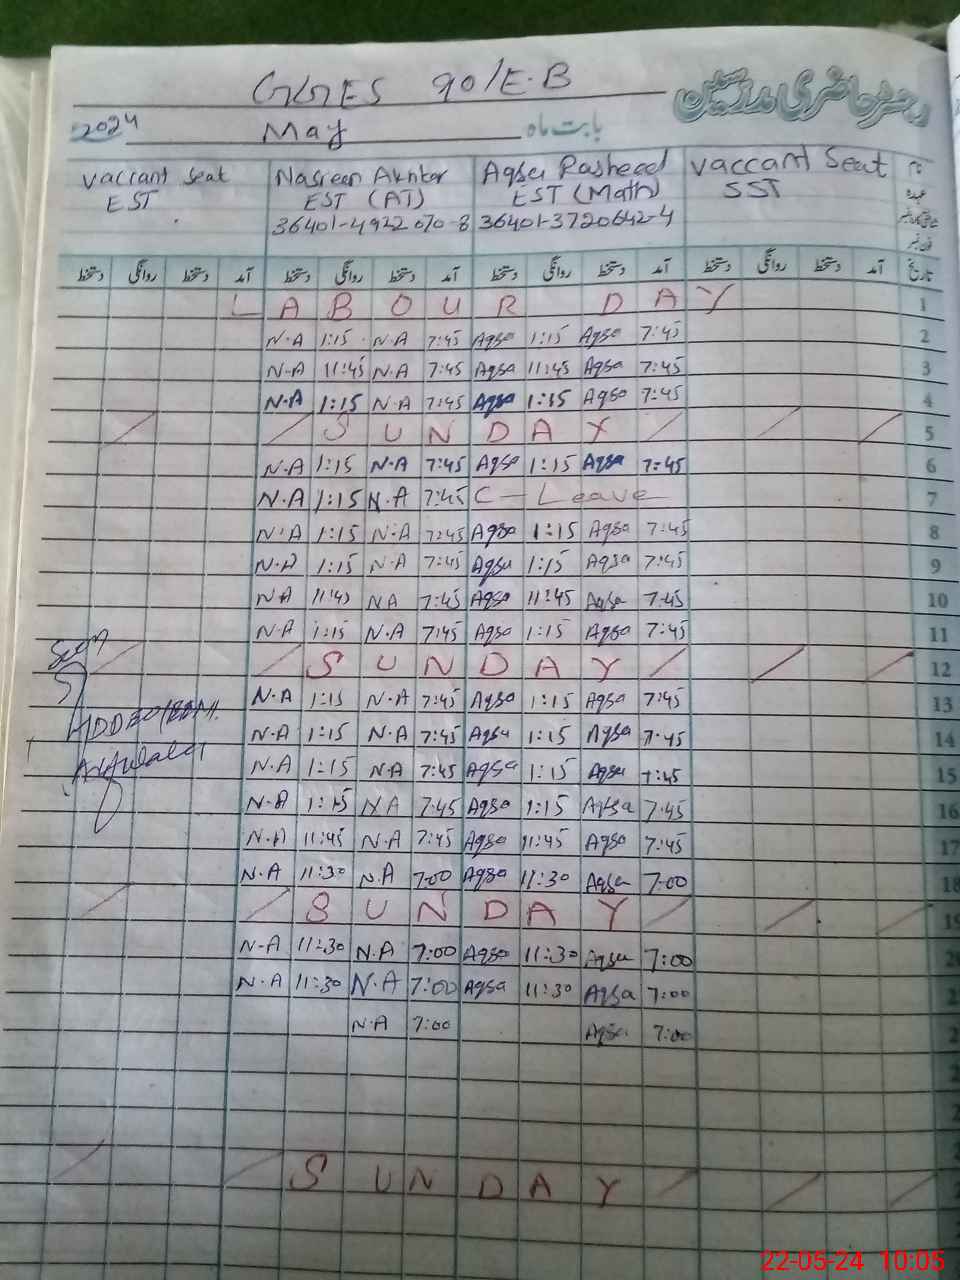 GGES 90/E.B
رجسٹر حاضری مدرسین
2024 May بابت ماہ
vaccant seat EST
Nasreen Akhtar EST (AT) 36401-4922070-8
Aqsa Rasheed EST (Math) 36401-3720642-4
vaccant Seat SST
نام
عہدہ
دستخط روانگی دستخط آمد دستخط روانگی دستخط آمد دستخط روانگی دستخط آمد دستخط روانگی دستخط آمد تاریخ
LABOUR DAY 1
N.A 1:15 N.A 7:45 Aqsa 1:15 Aqsa 7:45 2
N.A 11:45 N.A 7:45 Aqsa 11:45 Aqsa 7:45 3
N.A 1:15 N.A 7:45 Aqsa 1:15 Aqsa 7:45 4
SUNDAY 5
N.A 1:15 N.A 7:45 Aqsa 1:15 Aqsa 7:45 6
N.A 1:15 N.A 7:45 C-Leave 7
N.A 1:15 N.A 7:45 Aqsa 1:15 Aqsa 7:45 8
N.A 1:15 N.A 7:45 Aqsa 1:15 Aqsa 7:45 9
NA 11:45 NA 7:45 Aqsa 11:45 Aqsa 7:45 10
N.A 1:15 N.A 7:45 Aqsa 1:15 Aqsa 7:45 11
Seen
SUNDAY 12
N.A 1:15 N.A 7:45 Aqsa 1:15 Aqsa 7:45 13
N.A 1:15 N.A 7:45 Aqsa 1:15 Aqsa 7:45 14
N.A 1:15 NA 7:45 Aqsa 1:15 Aqsa 7:45 15
N.A 1:15 NA 7:45 Aqsa 1:15 Aqsa 7:45 16
N.A 11:45 N.A 7:45 Aqsa 11:45 Aqsa 7:45 17
N.A 11:30 N.A 7:00 Aqsa 11:30 Aqsa 7:00 18
SUNDAY 19
N.A 11:30 N.A 7:00 Aqsa 11:30 Aqsa 7:00
N.A 11:30 N.A 7:00 Aqsa 11:30 Aqsa 7:00
N.A 7:00 Aqsa 7:00
SUNDAY
22-05-24 10:05